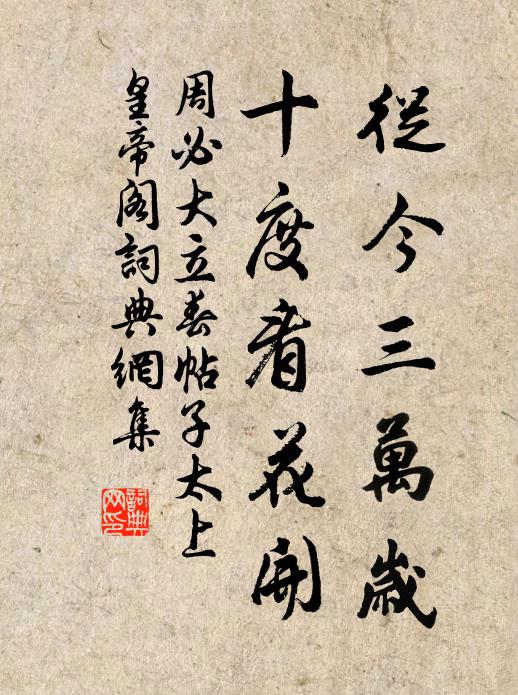 從今三萬歲
十度看花開
周必大立春帖子太上
皇帝閣詞典網集
詞典网印